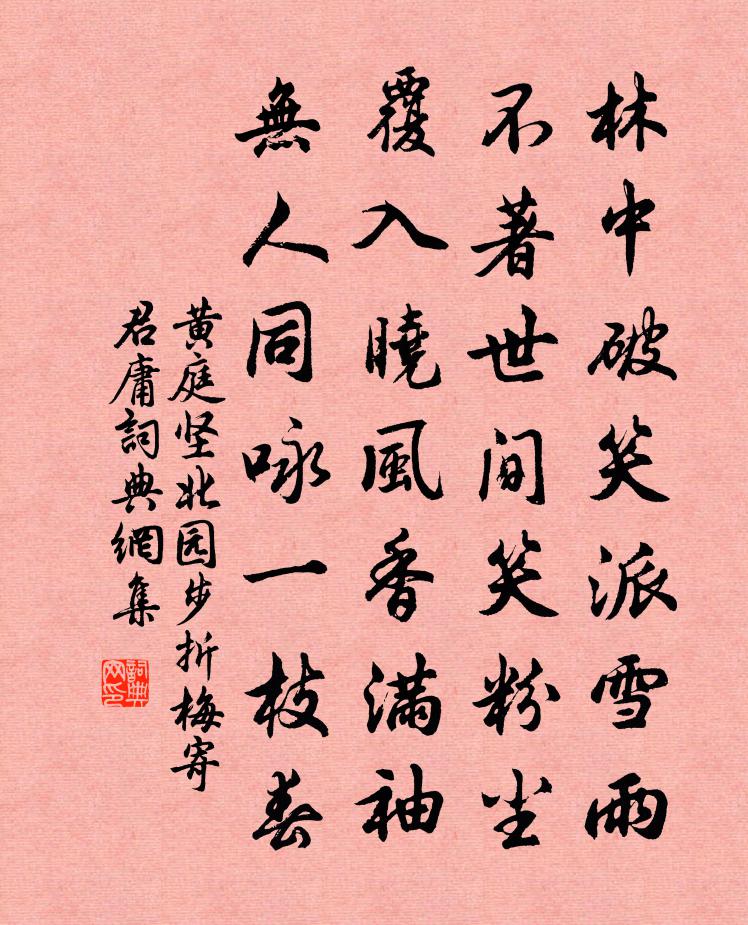 林中破笑派雪雨
不著世間笑粉尘
覆入曉風香滿袖
無人同咏一枝春
黄庭坚北园步折梅寄
君庸詞典網集
詞典网印